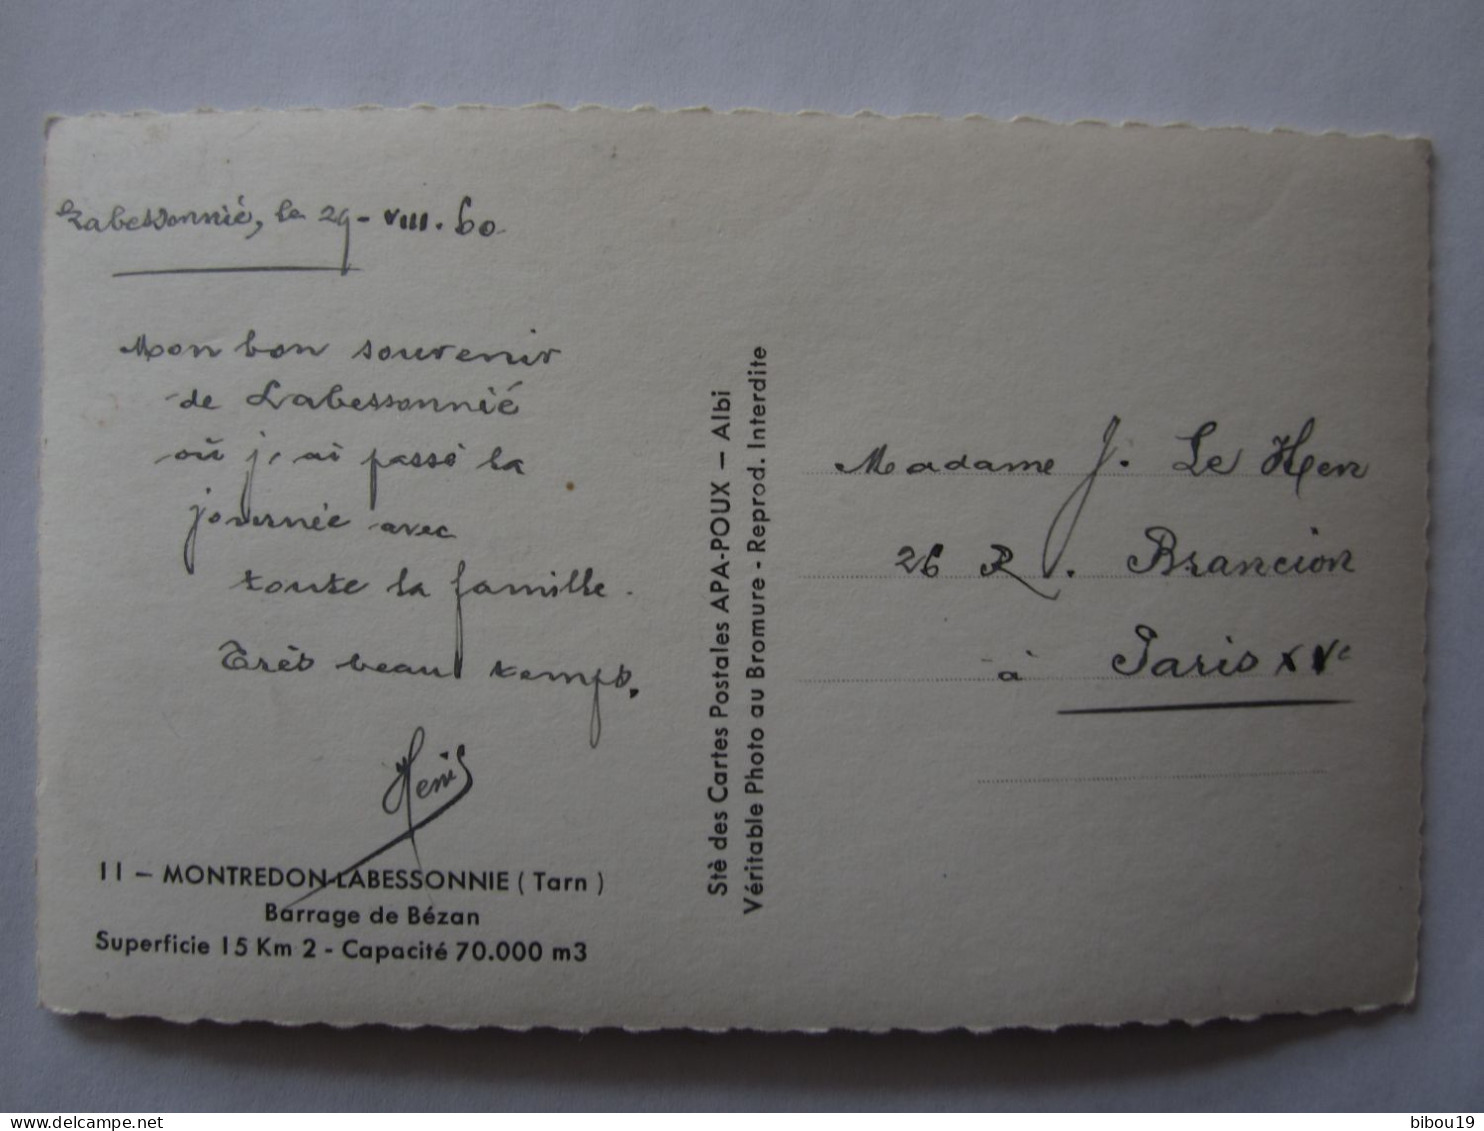 Labessonnié, le 29-VIII.60
Mon bon souvenir
de Labessonnié
où j'ai passé la
journée avec
toute la famille.
Très beau temps.
11 — MONTREDON-LABESSONNIE ( Tarn )
Barrage de Bézan
Superficie 15 Km 2 - Capacité 70.000 m3
Stè des Cartes Postales APA-POUX — Albi
Véritable Photo au Bromure - Reprod. Interdite
Madame J. Le Hen
26 R. Brancion
à Paris XVe
bibou19